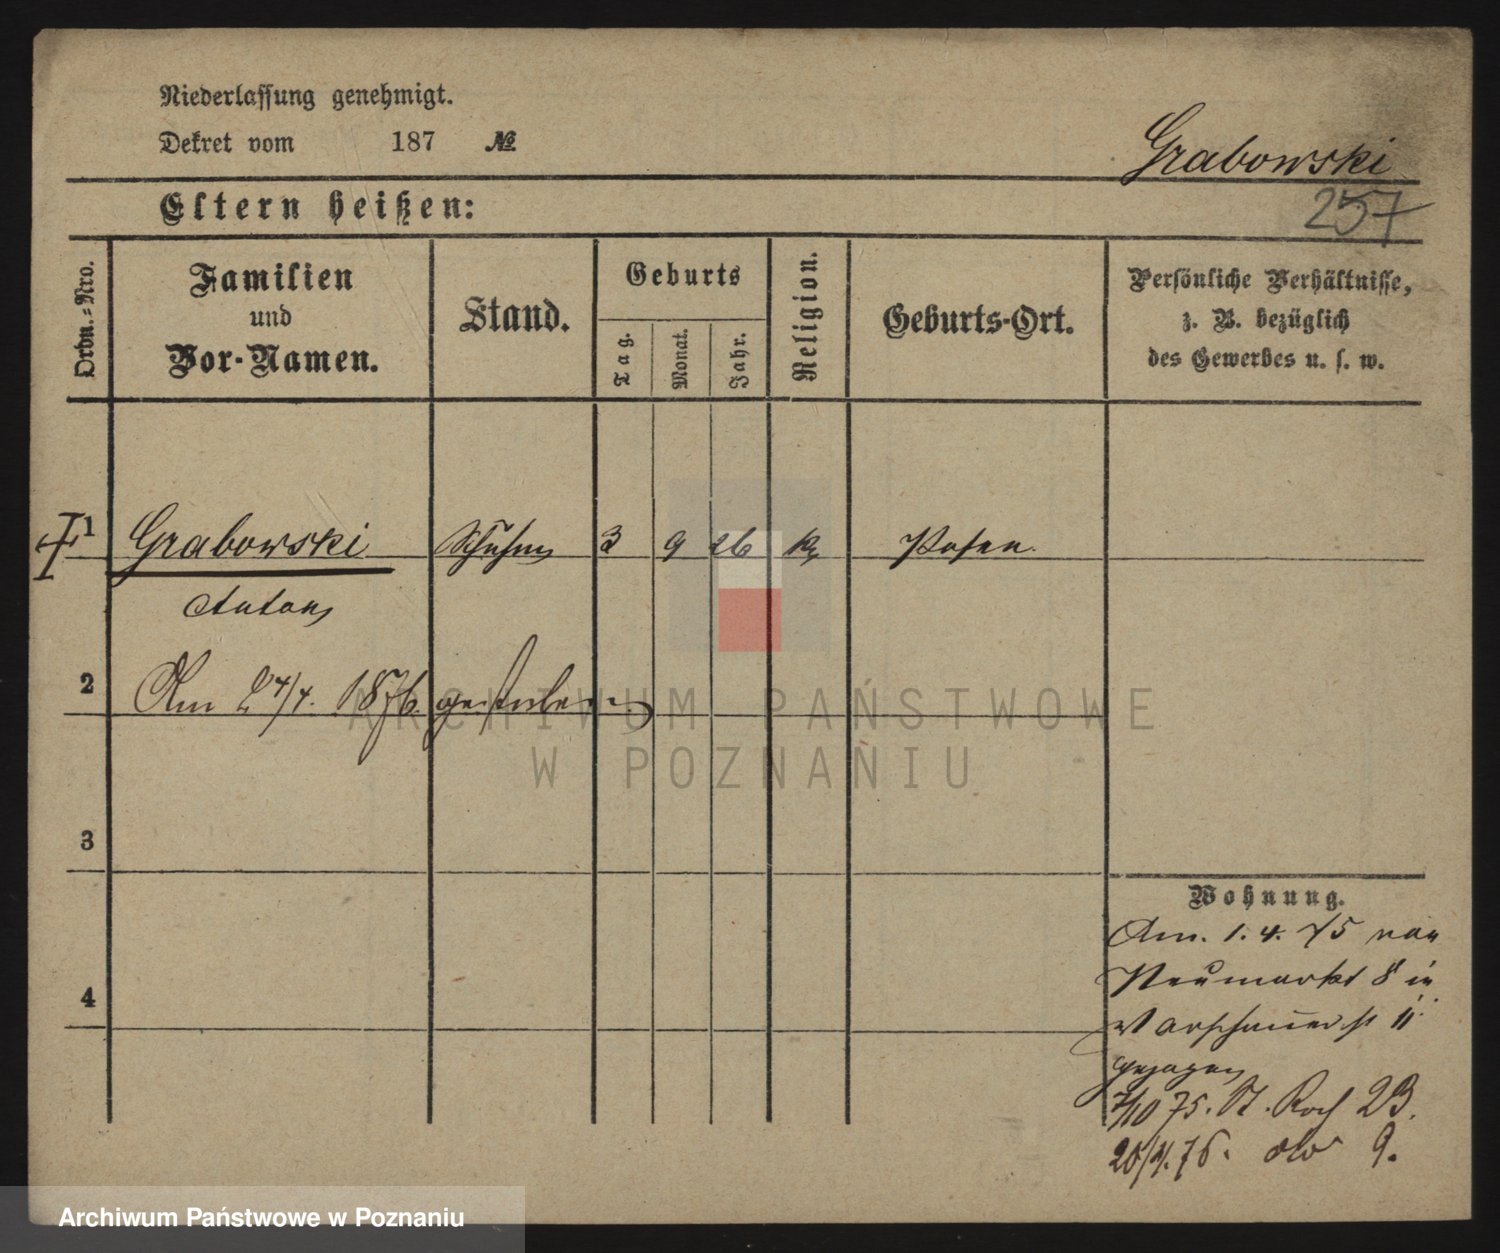 Niederlassung genehmigt.
Dekret vom 187 №
Grabowski
Eltern heißen:
257
Ordn.-Nro.
Familien
und
Vor-Namen.
Stand.
Geburts
Tag.
Monat.
Jahr.
Religion.
Geburts-Ort.
Persönliche Verhältnisse,
z. B. bezüglich
des Gewerbes u. s. w.
1 Grabowski 3 9 26 k Posen.
Anton
2 Am 24/4. 1876. gestorben
3
4
Wohnung.
Am. 1. 4. 75 von
Neumarkt 8 in
Warschauerst 11
gezogen
7/10 75. St. Roch 23.
20/4. 76. dto 9.
ARCHIWUM PAŃSTWOWE
W POZNANIU
Archiwum Państwowe w Poznaniu